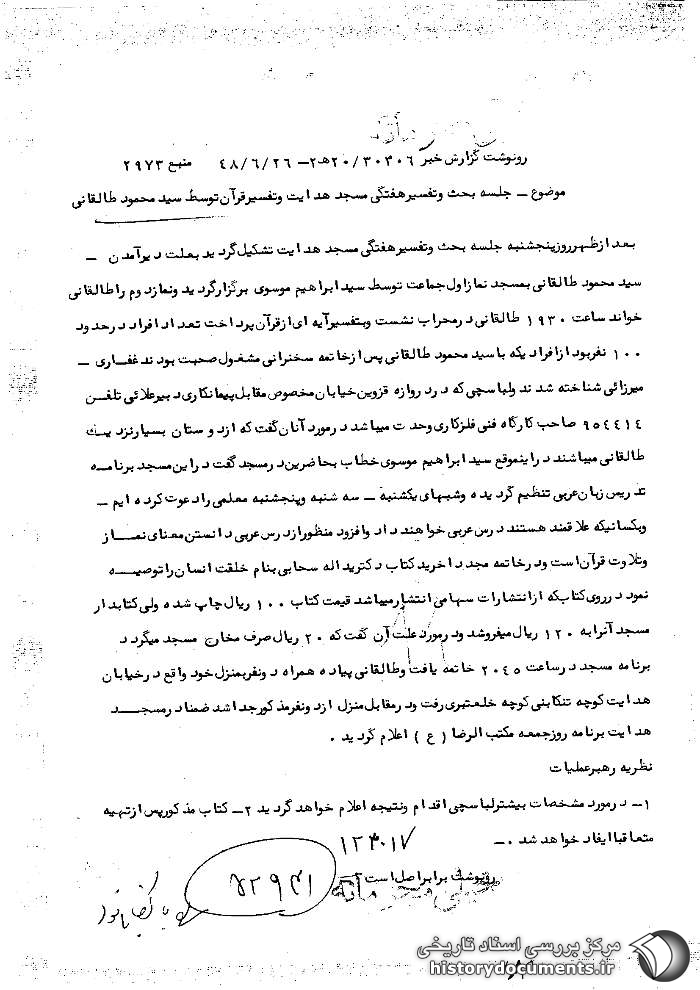 رونوشت گزارش خبر ۳۰۳۰۶/۲۰ه۲ – ۴۸/۶/۲۶ منبع ۲۹۷۳
موضوع – جلسه بحث وتفسیرهفتگی مسجد هدایت وتفسیرقرآن توسط سید محمود طالقانی
بعد ازظهرروزپنجشنبه جلسه بحث وتفسیرهفتگی مسجد هدایت تشکیل گردید بعلت دیرآمدن –
سید محمود طالقانی بمسجد نمازاول جماعت توسط سید ابراهیم موسوی برگزارگردید ونمازدوم راطالقانی
خواند ساعت ۱۹۳۰ طالقانی درمحراب نشست وبتفسیرآیه ای ازقرآن پرداخت تعداد افراد درحدود
۱۰۰ نفربود ازافرادیکه باسید محمود طالقانی پس ازخاتمه سخنرانی مشغول صحبت بودند غفاری –
میرزائی شناخته شدند ولباسچی که دردروازه قزوین خیابان مخصوص مقابل پیمانکاری دبیرعلائی تلفن
۹۵۴۴۱۴ صاحب کارگاه فنی فلزکاری وحدت میباشد درمورد آنان گفت که ازدوستان بسیارنزدیک
طالقانی میباشند دراینموقع سید ابراهیم موسوی خطاب بحاضرین درمسجد گفت دراین مسجد برنامه
تدریس زبان عربی تنظیم گردیده وشبهای یکشنبه – سه شنبه وپنجشنبه معلمی رادعوت کرده ایم –
وبکسانیکه علاقمند هستند درس عربی خواهند داد وافزود منظورازدرس عربی دانستن معنای نماز
وتلاوت قرآن است ودرخاتمه مجددا خرید کتاب دکتریداله سحابی بنام خلقت انسان راتوصیه
نمود درروی کتابکه ازانتشارات سهامی انتشارمیباشد قیمت کتاب ۱۰۰ ریال چاپ شده ولی کتابدار
مسجد آنرابه ۱۲۰ ریال میفروشد ودرمورد علت آن گفت که ۲۰ ریال صرف مخارج مسجد میگردد
برنامه مسجد درساعت ۲۰۴۵ خاتمه یافت وطالقانی پیاده همراه دونفربمنزل خود واقع درخیابان
هدایت کوچه تنکابنی کوچه خلعتبری رفت ودرمقابل منزل ازدونفرمذکورجداشد ضمنا درمسجد
هدایت برنامه روزجمعه مکتب الرضا (ع) اعلام گردید .
نظریه رهبرعملیات
۱– درمورد مشخصات بیشترلباسچی اقدام ونتیجه اعلام خواهد گردید ۲– کتاب مذکورپس ازتهیه
متعاقباایفاد خواهد شد .–
رونوشت برابراصل است
مرکز بررسی اسناد تاریخی
historydocuments.ir